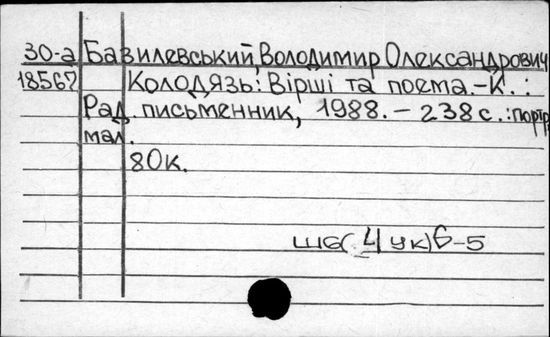 30-а Базилевський, Володимир Олександрович
18567 Колодязь: Вірші та поема. – К. :
Рад. письменник, 1988. – 238 с. : портр.
мал.
80к.
Ш6(4Ук)6-5